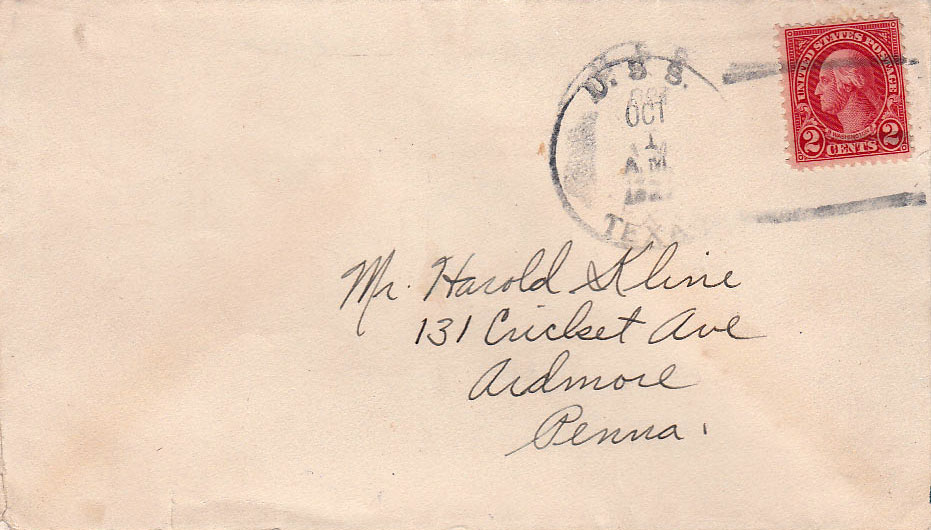 U.S.S.
OCT
1
A.M.
TEXAS
UNITED STATES POSTAGE
WASHINGTON
2 CENTS 2
Mr. Harold Kline
131 Cricket Ave
Ardmore
Penna.